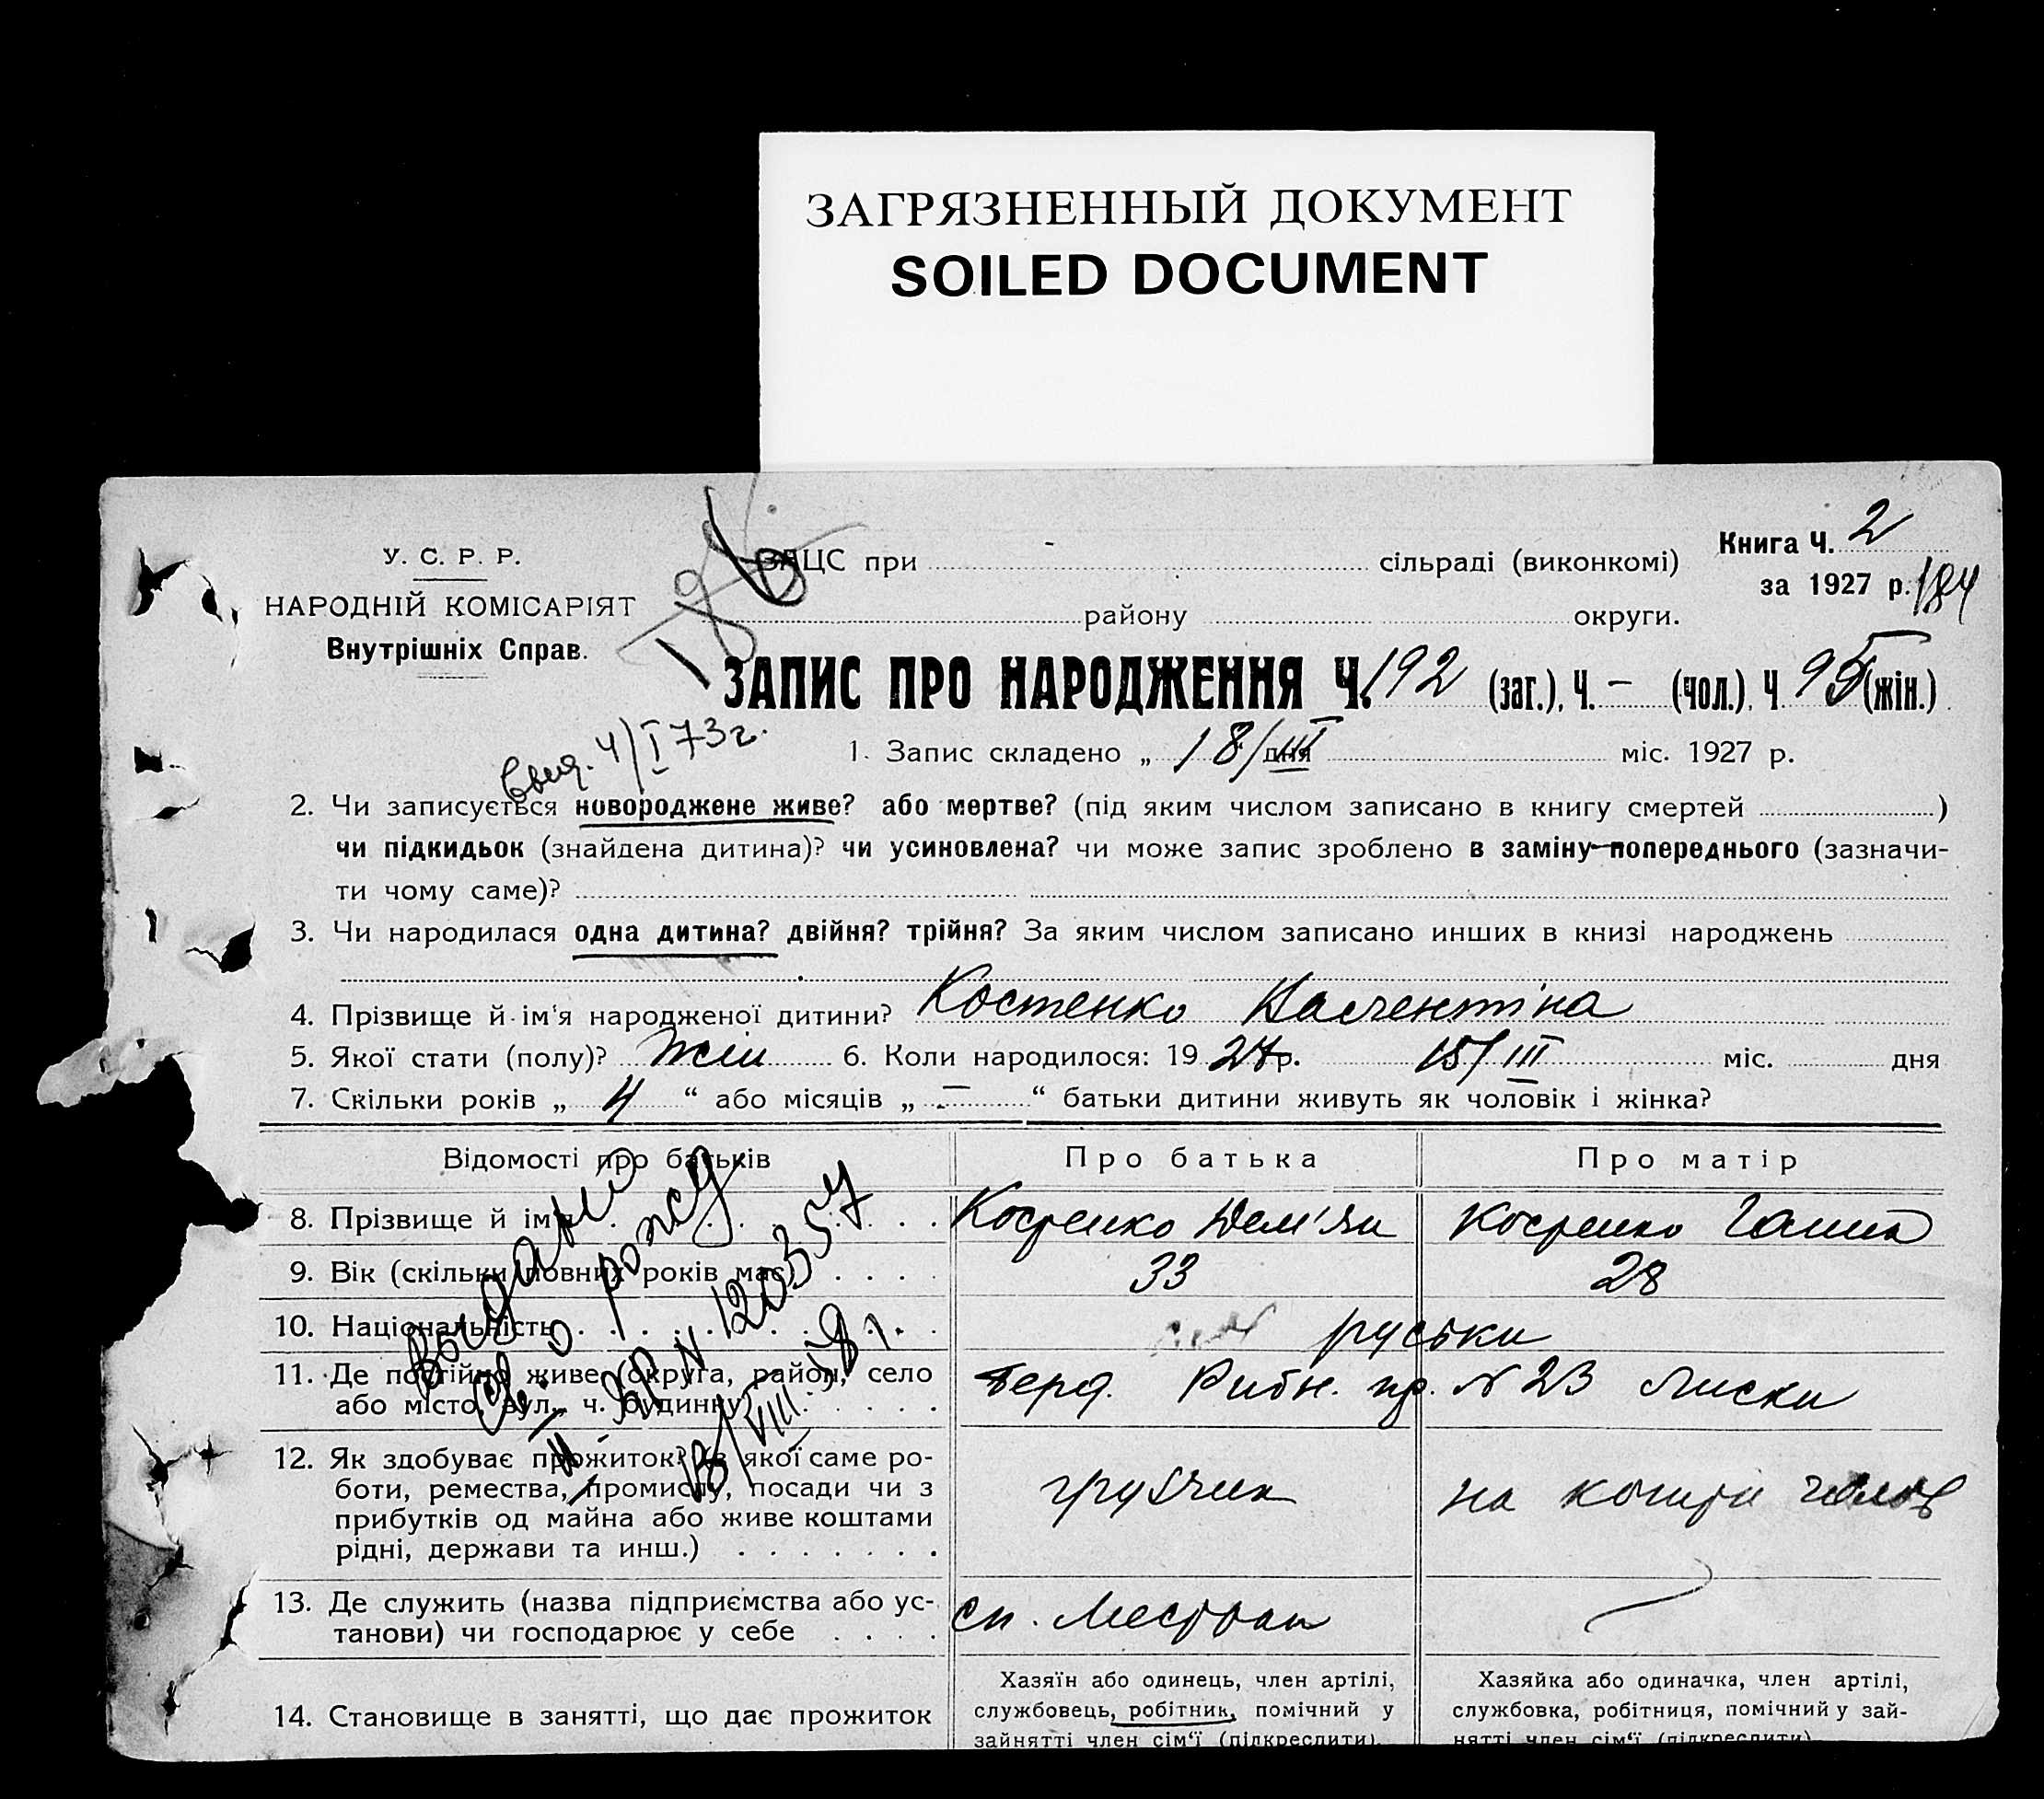 ЗАГРЯЗНЕННЫЙ ДОКУМЕНТ
SOILED DOCUMENT
Книга Ч. 2
У. С. Р. Р.
ЗАЦС при сільраді (виконкомі)
за 1927 р. 184
НАРОДНІЙ КОМІСАРІЯТ
району округи.
Внутрішніх Справ.
ЗАПИС ПРО НАРОДЖЕННЯ Ч. 192 (заг.), Ч. — (чол.), Ч 95 (жін.)
4/I 73г.
1. Запис складено „ 18/III дня міс. 1927 р.
2. Чи записується новороджене живе? або мертве? (під яким числом записано в книгу смертей )
чи підкидьок (знайдена дитина)? чи усиновлена? чи може запис зроблено в заміну попереднього (зазначи-
ти чому саме)?
3. Чи народилася одна дитина? двійня? трійня? За яким числом записано инших в книзі народжень
4. Прізвище й ім'я народженої дитини? Костенко Валентіна
5. Якої стати (полу)? Жін 6. Коли народилося: 19 27 р. 15/III міс. дня
7. Скільки років „ 4 “ або місяців „ — “ батьки дитини живуть як чоловік і жінка?
Відомості про батьків Про батька Про матір
8. Прізвище й ім'я Костенко Дем'ян Костенко Ганна
9. Вік (скільки повних років має) 33 28
10. Національність руськи
11. Де постійно живе (округа, район, село Берд. Рибн. пр. N 23 Лиски
або місто, вул., ч. будинку)
Выдано
св. о рожд
N 120357
VIII
12. Як здобуває прожиток? (з якої саме ро-
боти, ремества, промислу, посади чи з грузчик на кошти чолов
прибутків од майна або живе коштами
рідні, держави та инш.)
13. Де служить (назва підприємства або ус-
танови) чи господарює у себе
Хазяїн або одинець, член артілі, Хазяйка або одиначка, член артілі,
14. Становище в занятті, що дає прожиток службовець, робітник, помічний у службовка, робітниця, помічний у зай-
зайнятті член сім'ї (підкреслити). нятті член сім'ї (підкреслити)